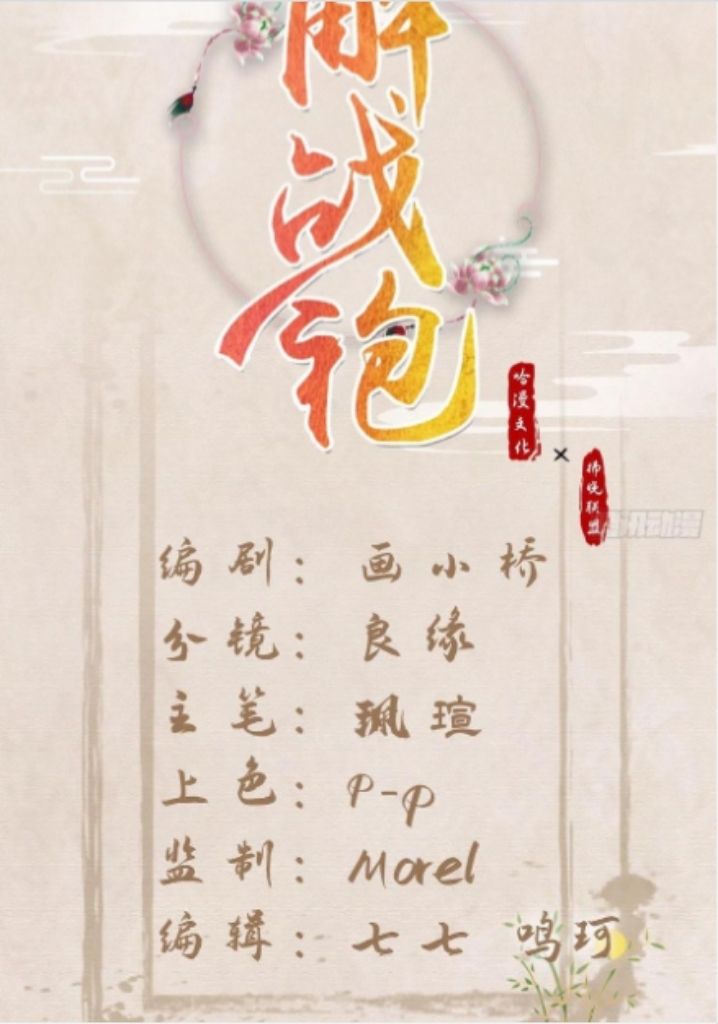 解
战
袍
哈漫文化
×
拂晓联盟
腾讯动漫
编剧：画小桥
分镜：良缘
主笔：珮瑄
上色：P-p
监制：Morel
编辑：七七 鸣珂